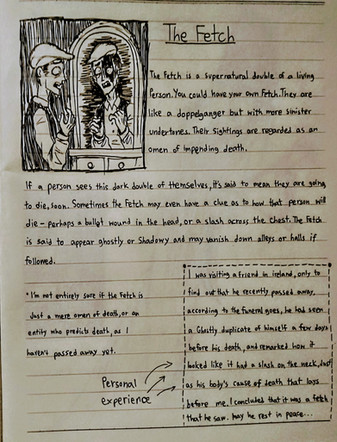 The Fetch
The Fetch is a supernatural double of a living
Person. You could have your own Fetch. They are
like a doppelganger but with more sinister
undertones. Their sightings are regarded as an
omen of impending death.
If a person sees this dark double of themselves, it's said to mean they are going
to die, soon. Sometimes the Fetch may even have a clue as to how that person will
die - perhaps a bullet wound in the head, or a slash across the chest. The Fetch
is said to appear ghostly or shadowy and may vanish down alleys or halls if
followed.
*I'm not entirely sure if the Fetch is
Just a mere omen of death, or an
entity who predicts death, as I
haven't passed away yet.
Personal
experience
I was visiting a friend in ireland, only to
find out that he recently passed away,
according to the funeral goes, he had seen
a Ghostly duplicate of himself a few days
before his death, and remarked how it
looked like it had a slash on the neck, Just
as his body's cause of death that lays
before me. I concluded that it was a fetch
that he saw. may he rest in peace...